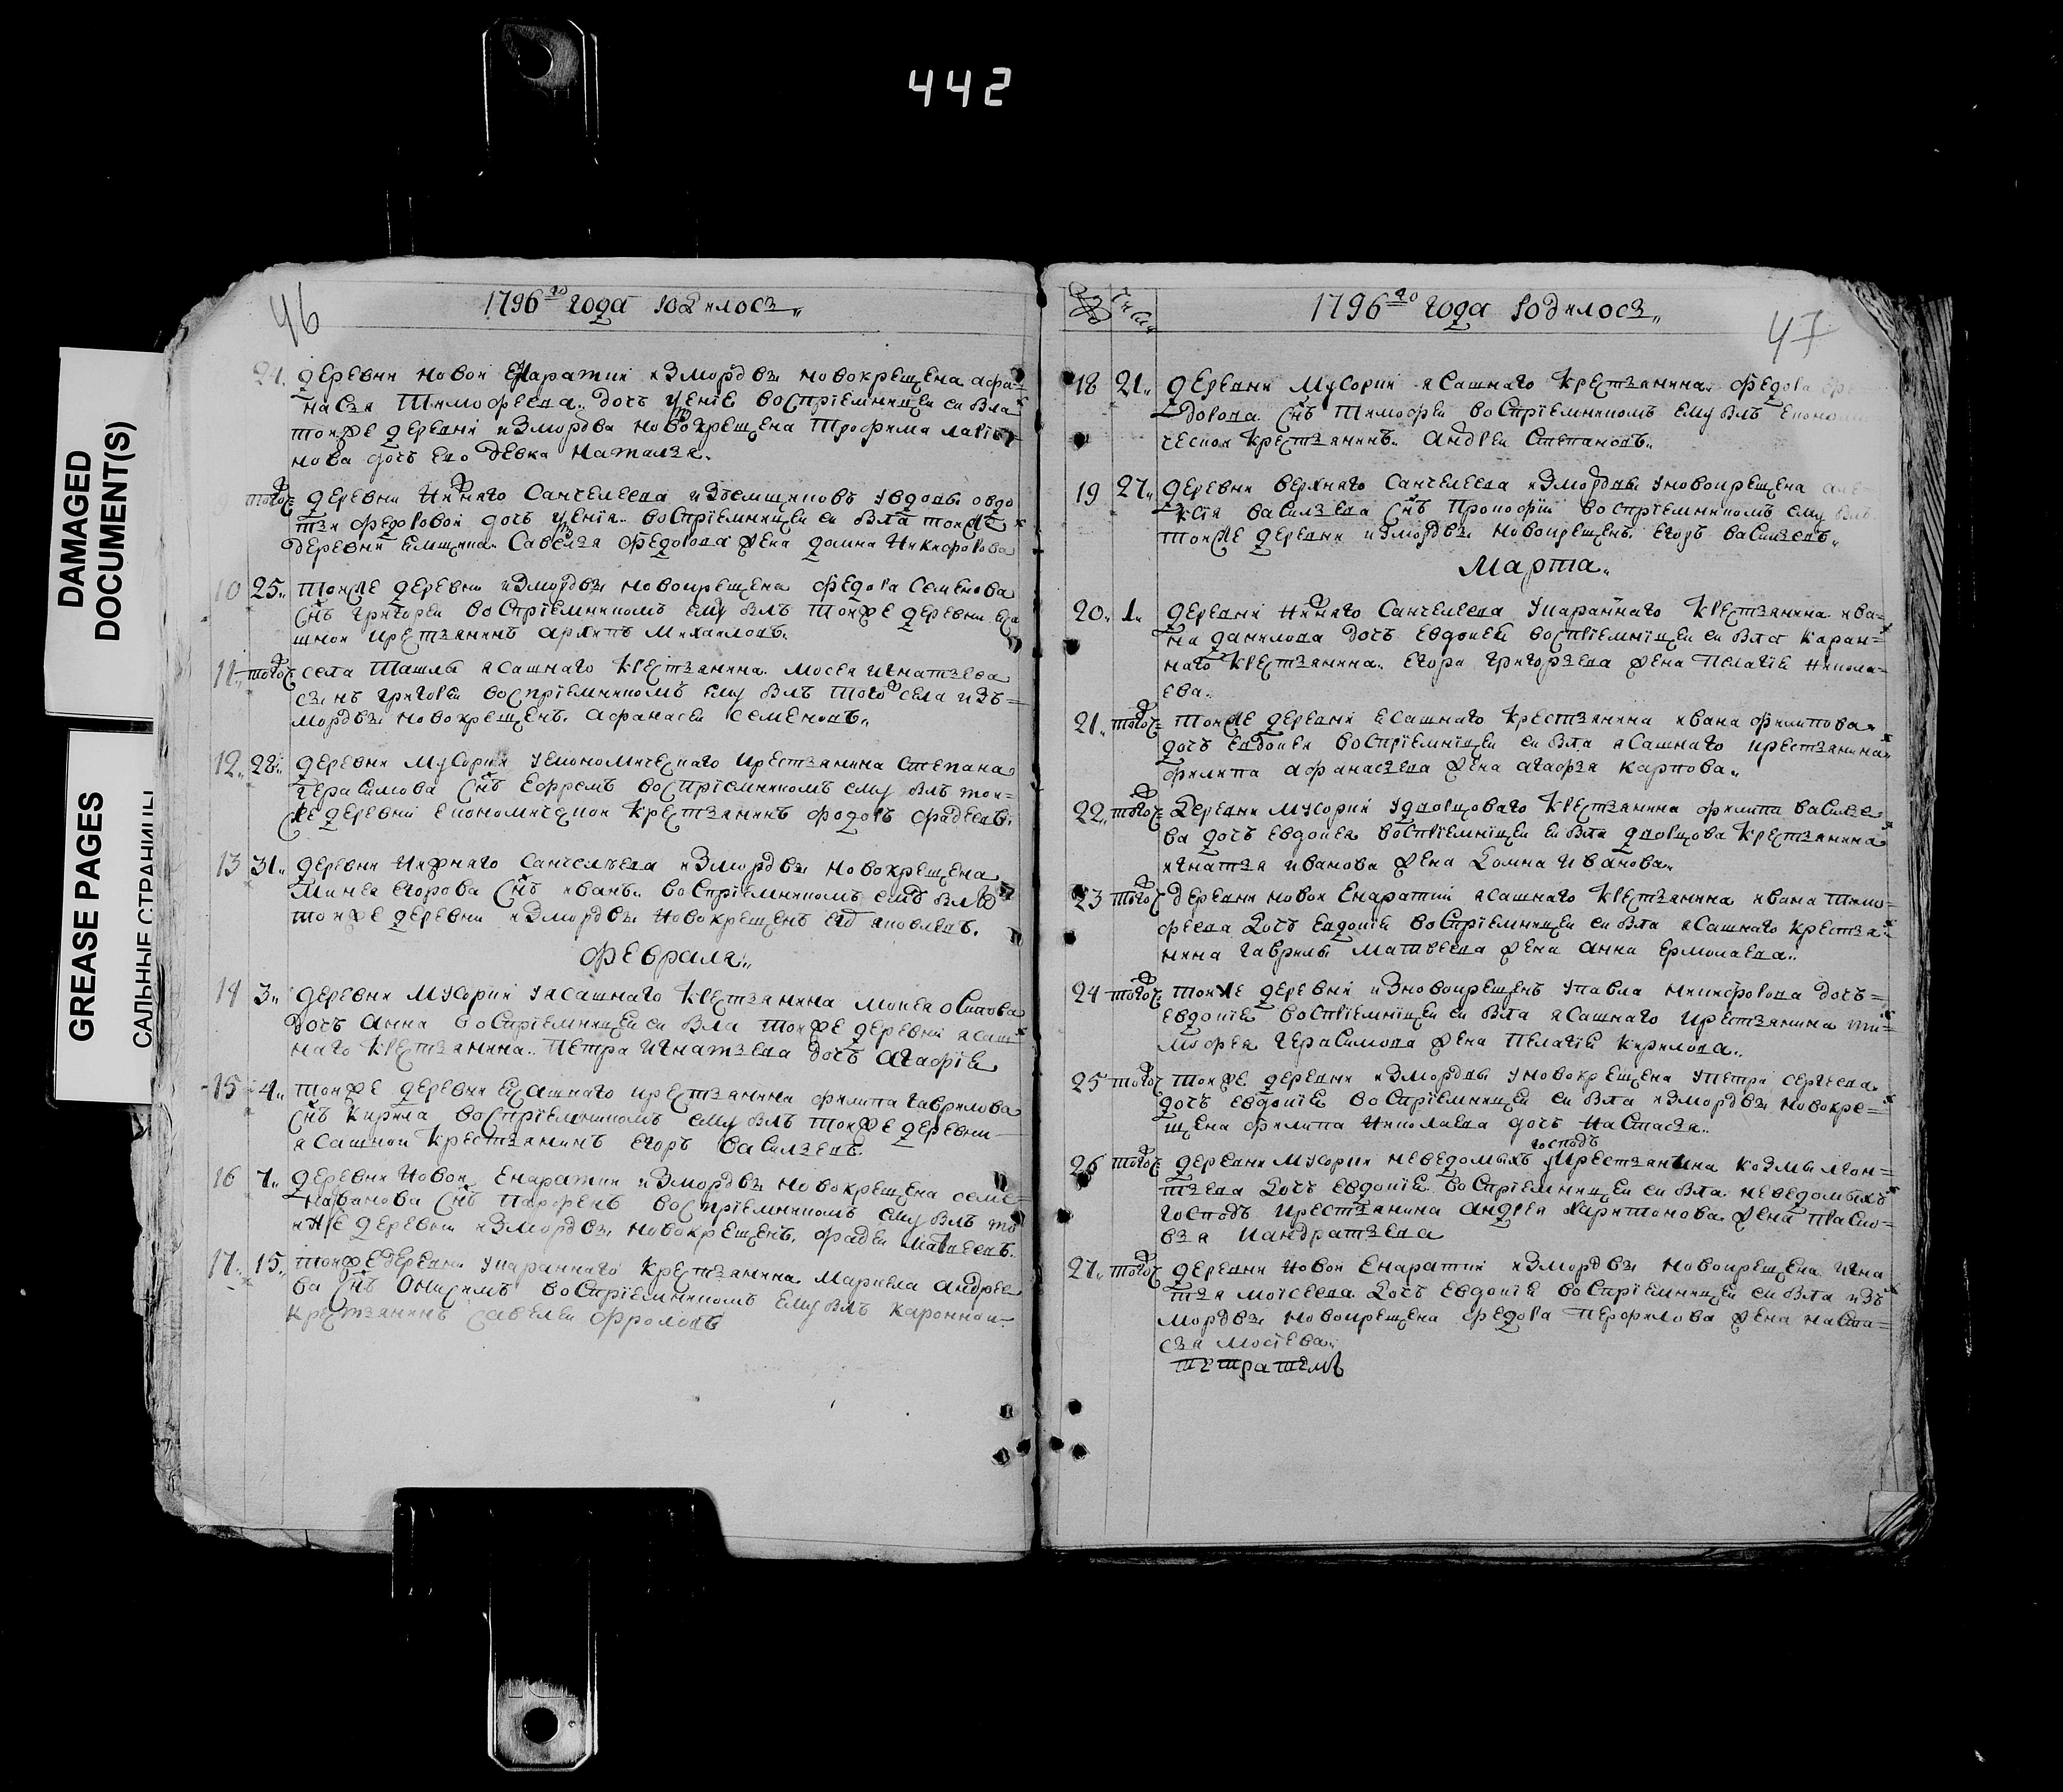 442
DAMAGED
DOCUMENT(S)
GREASE PAGES
САЛЬНЫЕ СТРАНИЦЫ
46
1796го года родилось
24. деревни новои Енаратки измордвы новокрещена афа-
насья Тимофеева дочь воспрiемницеи еи была
тоиже деревни измордвы новокрещена Трофима
нова дочь ево девка Наталья
тогож деревни Нижняго Санчелеева изъемщиковъ увдовы овдо
тьи федоровои дочь воспрiемницеи еи была тоиже
деревни емщика Савелья федорова жена домна Никифорова
10 25 тоиже деревни измордвы новокрещена федора Семенова
снъ григореи воспрiемникомъ ему былъ тоиже деревни
шнои крестьянинъ архипъ Михаиловъ
11 тогож села Ташлы ясашнаго крестьянина Мосея игнатьева
сынъ григореи воспрiемникомъ ему былъ тогож села изъ=
мордвы новокрещенъ афанасеи семеновъ
12 28 деревни Мусорки уекономическаго крестьянина Степана
герасимова снъ Ефремъ воспрiемникомъ ему былъ тои-
же деревни економическои крестьянинъ федоръ фадеевъ
13 31 деревни Нижняго Санчелеева измордвы новокрещена
Минея егорова снъ иванъ воспрiемникомъ ему былъ
тоиже деревни измордвы новокрещенъ яковлевъ
февраля
14 3 деревни Мусорки уясашнаго крестьянина Мокея осипова
дочь анна воспрiемницеи еи была тоиже деревни ясаш
наго крестьянина Петра игнатьева дочь агафiя
15 4 тоиже деревни ясашнаго крестьянина филипа гаврилова
снъ Кирила воспрiемникомъ ему былъ тоиже деревни
ясашнои крестьянинъ егоръ васильевъ
16 7 деревни Новои Енаратки измордвы новокрещена семе-
на иванова снъ Парфенъ воспрiемникомъ ему былъ то
иже деревни измордвы новокрещенъ фадеи Матвеевъ
17 15 тоиже деревни укараннаго крестьянина Маркела андрее
ва снъ Онисимъ воспрiемникомъ ему былъ кароннои
крестьянинъ Савелеи Фроловъ
47
1796го года родилось
18 21 деревни Мусорки ясашнаго крестьянина федора
дорова снъ Тимофеи воспрiемникомъ ему былъ економи
ческои крестьянинъ андреи Степановъ
19 27 деревни верхняго Санчелеева измордвы уновокрещена але
ксея васильева снъ Прокофiи воспрiемникомъ ему былъ
тоиже деревни измордвы новокрещенъ егоръ васильевъ
Марта
20 1 деревни Нижняго Санчелеева укараннаго крестьянина ива-
на данилова дочь евдокея воспрiемницеи еи была каран-
наго крестьянина егора григорьева жена Пелагiя никола-
ева
21 тогож тоиже деревни ясашнаго крестьянина ивана филипова
дочь евдокея воспрiемницеи еи была ясашнаго крестьянина
филипа афанасьева жена агафья карпова
22 тогож деревни мусорки удворцоваго крестьянина филипа василье
ва дочь евдокея воспрiемницеи еи была дворцова крестьянина
игнатья иванова жена домна иванова
23 тогож деревни новои Енаратки ясашнаго крестьянина ивана тимо-
феева дочь евдокiя воспрiемницеи еи была ясашнаго крестья-
нина гаврилы матвеева жена анна ермолаева
24 тогож тоиже деревни изновокрещенъ упавла никифорова дочь=
евдокiя воспрiемницеи еи была ясашнаго крестьянина ти=
мофея герасимова жена пелагiя кирилова
25 тогож тоиже деревни измордвы уновокрещена упетра сергеева
дочь евдокiя воспрiемницеи еи была измордвы новокре=
щена филипа Николаева дочь Настасья
господъ
26 тогож деревни мусорки неведомыхъ укрестьянина козмы леон=
тьева дочь евдокiя воспрiемницеи еи была неведомыхъ
господъ крестьянина андрея харитонова жена праско-
вья кандратьева
27 тогож деревни Новои Енаратки измордвы новокрещена игна
тья моiсеева дочь евдокiя воспрiемницеи еи была изъ
мордвы новокрещена федора Перфилова жена наста-
сья мосiева